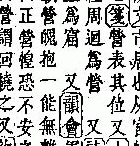 箋營表其位又
周迴爲營 又
爲富 又韻會
營魄抱一能無
正營惶恐不安
營謂回繞之又